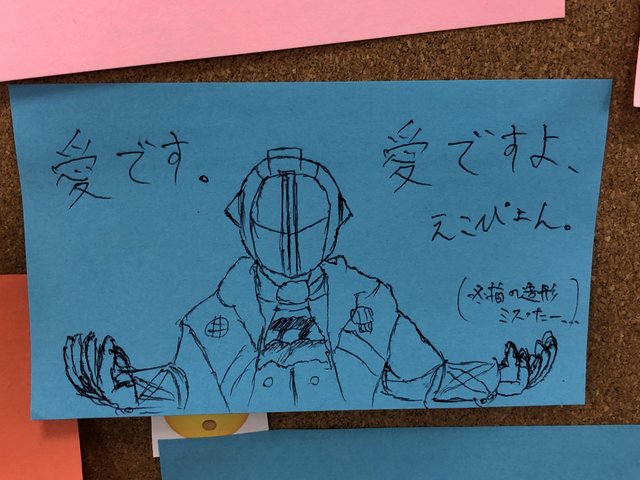 愛です。
愛ですよ、
えこぴょん。
の造形
ミスったー...)